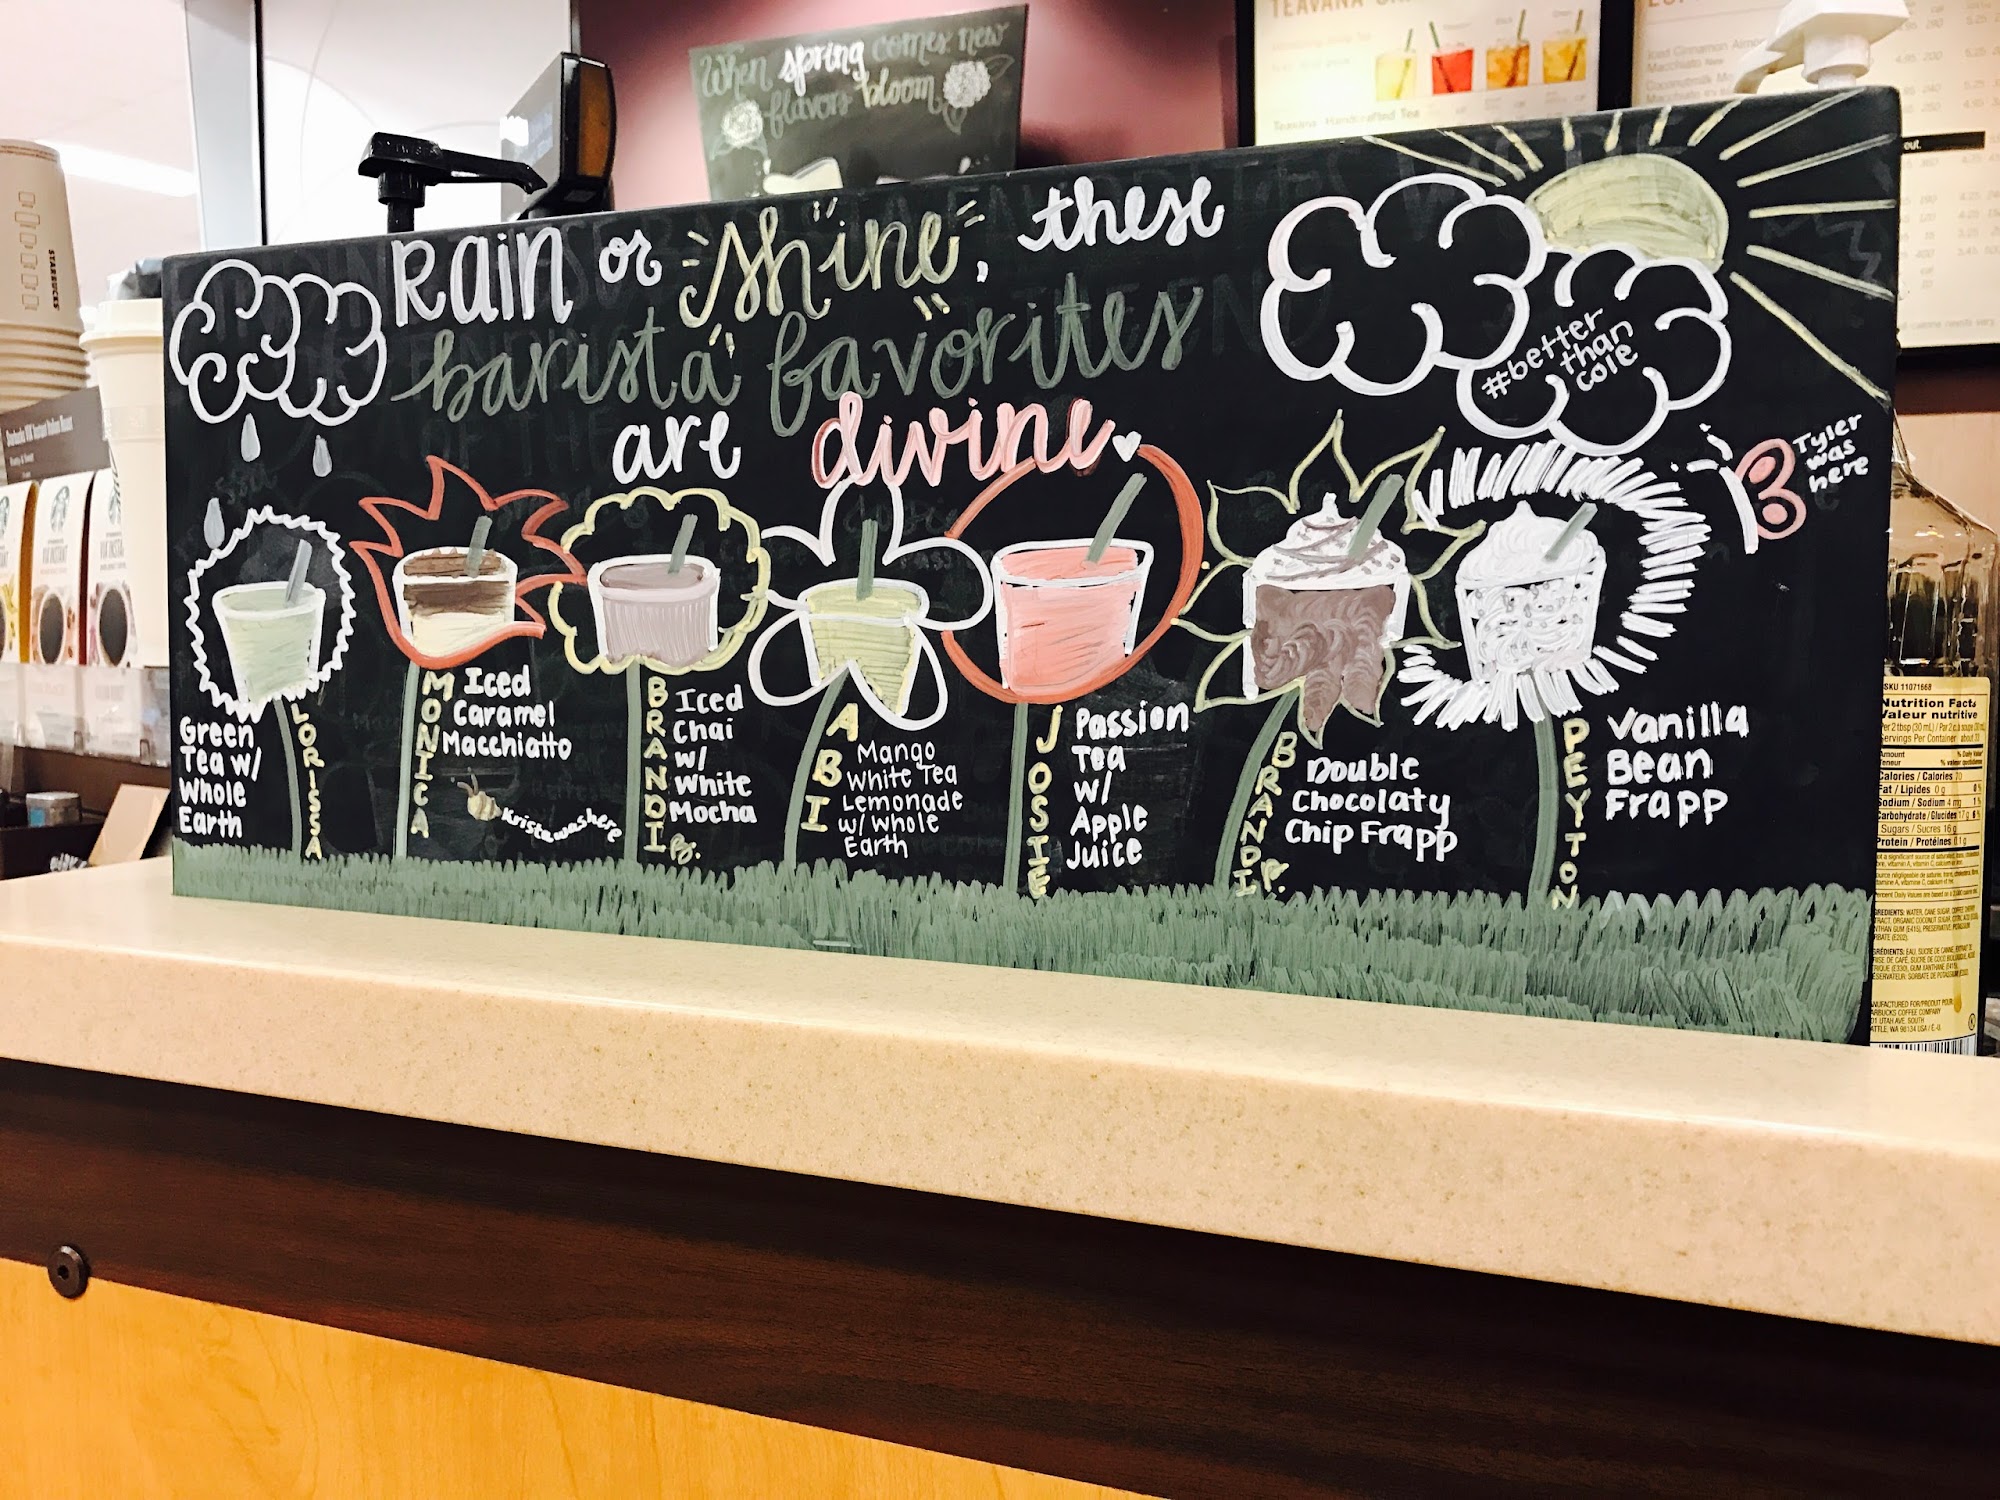 When spring comes new
flavors bloom
TEAVANA
Teavana Handcrafted Tea
Iced Cinnamon Almo
Macchiato New
STARBUCKS
Rain or shine, these
barista favorites
are divine.
#better
than
cole
Tyler
was
here
Green
Tea w/
Whole
Earth
LORISSA
MONICA
Iced
Caramel
Macchiatto
Krista was here
BRANDI B.
Iced
Chai
w/
White
Mocha
ABI
Mango
White Tea
Lemonade
w/ Whole
Earth
JOSIE
Passion
Tea
w/
Apple
Juice
BRANDI P.
Double
Chocolaty
Chip Frapp
PEYTON
Vanilla
Bean
Frapp
SKU 11071668
Nutrition Facts
Valeur nutritive
Per 2 tbsp (30 mL)
Servings Per Container
Amount
Teneur
Calories / Calories 70
Fat / Lipides 0 g 0%
Sodium / Sodium 4 mg 1%
Carbohydrate / Glucides 17 g 6%
Sugars / Sucres 16 g
Protein / Protéines 0.1 g